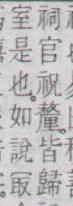 祠官祝釐皆歸
室是也如說㝡